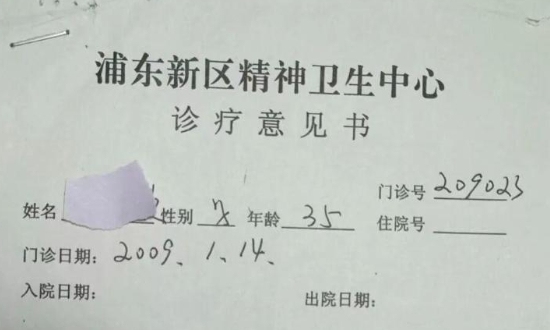 浦东新区精神卫生中心
诊疗意见书
门诊号 209023
姓名 性别 女 年龄 35 住院号
门诊日期: 2009. 1. 14.
入院日期: 出院日期: